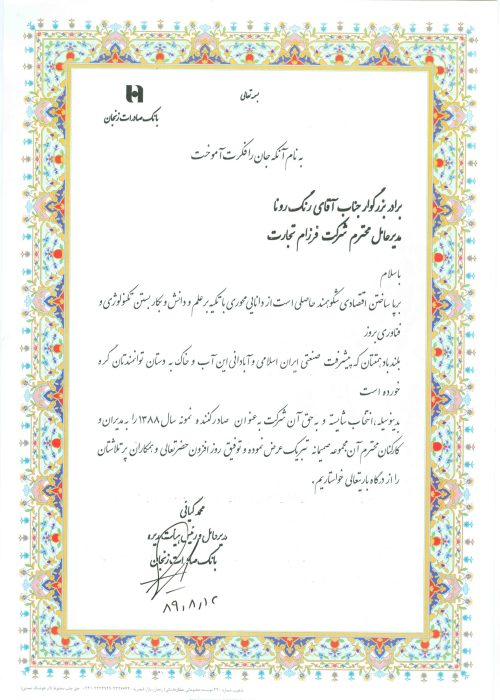 بسمه تعالی
بانک صادرات زنجان
به نام آنکه جان را فکرت آموخت
برادر بزرگوار جناب آقای رنگ رونا
مدیرعامل محترم شرکت فرزام تجارت
باسلام
برپا ساختن اقتصادی شکوهمند حاصلی است از دانایی محوری با تکیه بر علم و دانش و بکار بستن تکنولوژی و
فناوری بروز
بلند باد همتتان که پیشرفت صنعتی ایران اسلامی و آبادانی این آب و خاک به دستان توانمندتان گره
خورده است
بدینوسیله انتخاب شایسته و به حق آن شرکت به عنوان صادرکننده نمونه سال ۱۳۸۸ را به مدیران و
کارکنان محترم آن مجموعه صمیمانه تبریک عرض نموده و توفیق روز افزون حضرتعالی و همکاران پرتلاشتان
را از درگاه باریتعالی خواستاریم.
محمد کیانی
مدیرعامل و رئیس هیأت مدیره
بانک صادرات زنجان
۸۹،۸،۱۲